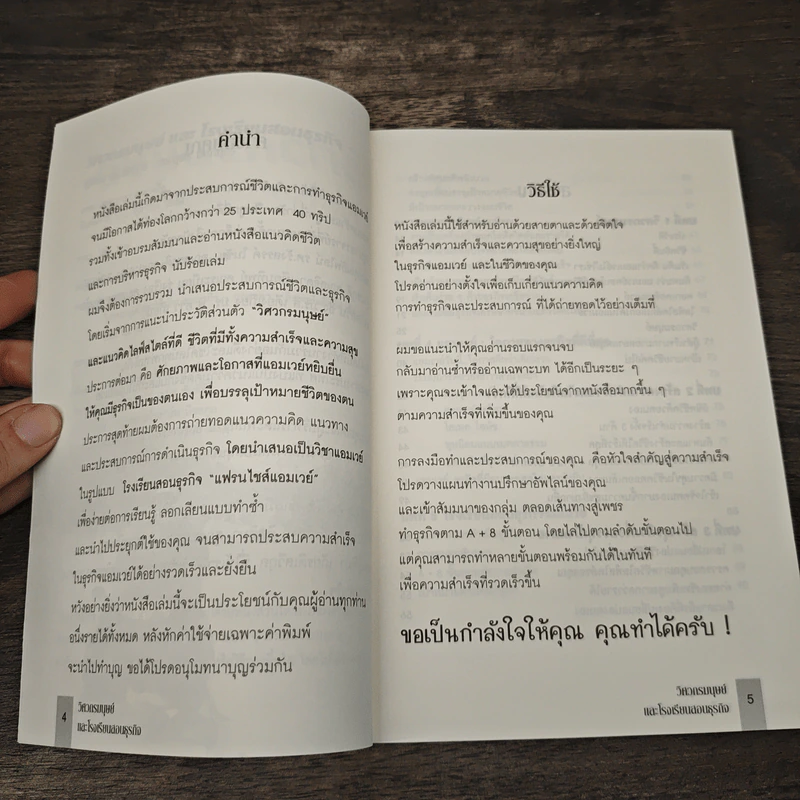 คำนำ
หนังสือเล่มนี้เกิดมาจากประสบการณ์ชีวิตและการทำธุรกิจแอมเวย์
จนมีโอกาสได้ท่องโลกกว้างกว่า 25 ประเทศ 40 ทริป
รวมทั้งเข้าอบรมสัมมนาและอ่านหนังสือแนวคิดชีวิต
และการบริหารธุรกิจ นับร้อยเล่ม
ผมจึงต้องการรวบรวม นำเสนอประสบการณ์ชีวิตและธุรกิจ
โดยเริ่มจากการแนะนำประวัติส่วนตัว "วิศวกรมนุษย์"
และแนวคิดไลฟ์สไตล์ที่ดี ชีวิตที่มีทั้งความสำเร็จและความสุข
ประการต่อมา คือ ศักยภาพและโอกาสที่แอมเวย์หยิบยื่น
ให้คุณมีธุรกิจเป็นของตนเอง เพื่อบรรลุเป้าหมายชีวิตของตน
ประการสุดท้ายผมต้องการถ่ายทอดแนวความคิด แนวทาง
และประสบการณ์การดำเนินธุรกิจ โดยนำเสนอเป็นวิชาแอมเวย์
ในรูปแบบ โรงเรียนสอนธุรกิจ "แฟรนไชส์แอมเวย์"
เพื่อง่ายต่อการเรียนรู้ ลอกเลียนแบบทำซ้ำ
และนำไปประยุกต์ใช้ของคุณ จนสามารถประสบความสำเร็จ
ในธุรกิจแอมเวย์ได้อย่างรวดเร็วและยั่งยืน
หวังอย่างยิ่งว่าหนังสือเล่มนี้จะเป็นประโยชน์กับคุณผู้อ่านทุกท่าน
อนึ่งรายได้ทั้งหมด หลังหักค่าใช้จ่ายเฉพาะค่าพิมพ์
จะนำไปทำบุญ ขอได้โปรดอนุโมทนาบุญร่วมกัน
4
วิศวกรมนุษย์
และโรงเรียนสอนธุรกิจ
วิธีใช้
หนังสือเล่มนี้ใช้สำหรับอ่านด้วยสายตาและด้วยจิตใจ
เพื่อสร้างความสำเร็จและความสุขอย่างยิ่งใหญ่
ในธุรกิจแอมเวย์ และในชีวิตของคุณ
โปรดอ่านอย่างตั้งใจเพื่อเก็บเกี่ยวแนวความคิด
การทำธุรกิจและประสบการณ์ ที่ได้ถ่ายทอดไว้อย่างเต็มที่
ผมขอแนะนำให้คุณอ่านรอบแรกจนจบ
กลับมาอ่านซ้ำหรืออ่านเฉพาะบท ได้อีกเป็นระยะ ๆ
เพราะคุณจะเข้าใจและได้ประโยชน์จากหนังสือมากขึ้น ๆ
ตามความสำเร็จที่เพิ่มขึ้นของคุณ
การลงมือทำและประสบการณ์ของคุณ คือหัวใจสำคัญสู่ความสำเร็จ
โปรดวางแผนทำงานปรึกษาอัพไลน์ของคุณ
และเข้าสัมมนาของกลุ่ม ตลอดเส้นทางสู่เพชร
ทำธุรกิจตาม A + 8 ขั้นตอน โดยไล่ไปตามลำดับขั้นตอนไป
แต่คุณสามารถทำหลายขั้นตอนพร้อมกันได้ในทันที
เพื่อความสำเร็จที่รวดเร็วขึ้น
ขอเป็นกำลังใจให้คุณ คุณทำได้ครับ !
วิศวกรมนุษย์
และโรงเรียนสอนธุรกิจ
5